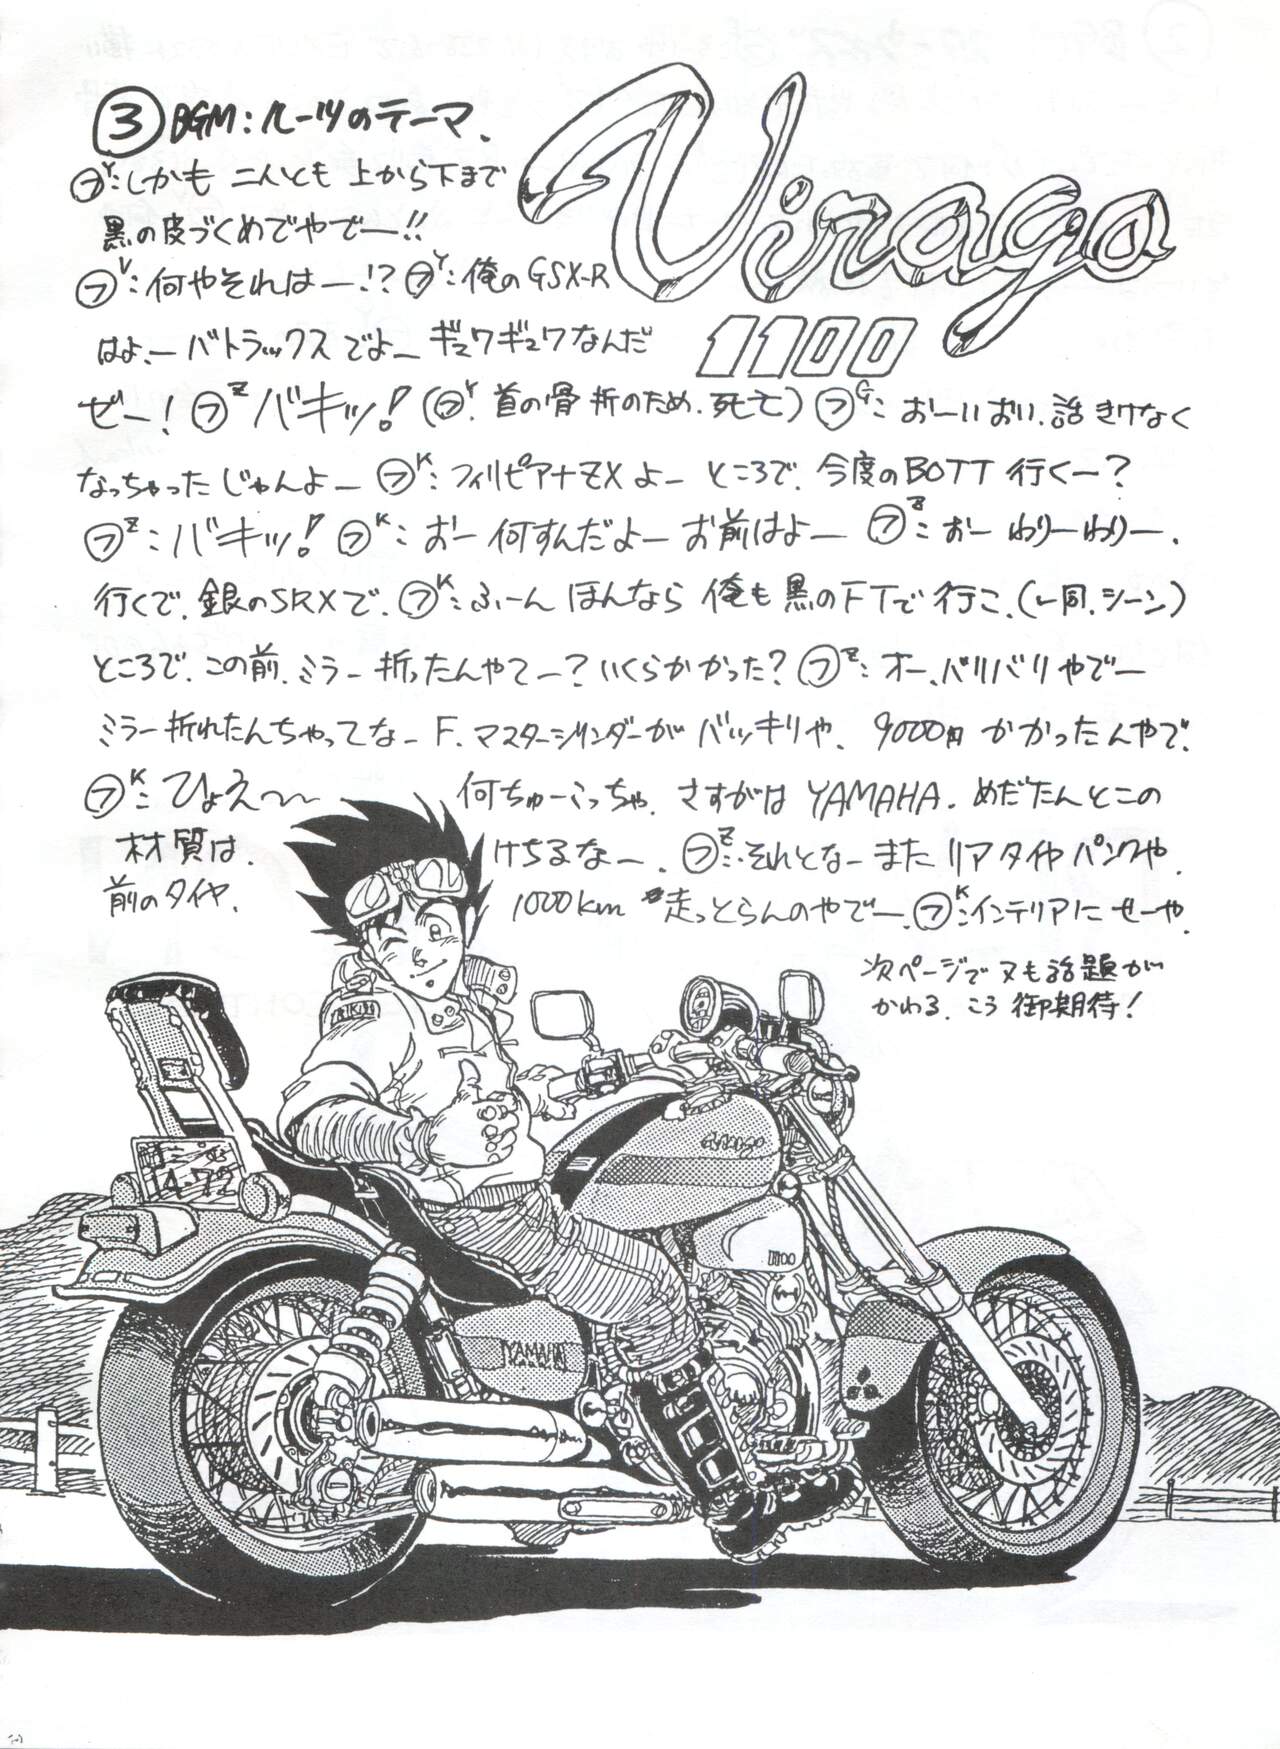 Virago
1100
③BGM:ルーツのテーマ、
㋫Y:しかも 二人とも 上から下まで
黒の皮づくめでやでー!!
㋫V:何やそれはー!? ㋫Y:俺のGSX-R
はよ、ーバトラックスでよー ギュワギュワなんだ
ぜー! ㋫Z バキッ! (㋫Y.首の骨 折のため、死亡) ㋫G:おーいおい、話きけなく
なっちゃったじゃんよー ㋫K:フィリピアナZXよー ところで、今度のBOTT 行くー?
㋫Z:バキッ! ㋫K:おー 何すんだよー お前はよー ㋫Z:おー わりーわりー、
行くで、銀のSRXで、㋫K:ふーん ほんなら 俺も黒のFTで行こ、(〜同、シーン)
ところで、この前、ミラー折ったんやてー? いくらかかった? ㋫Z:オー、バリバリやでー
ミラー折れたんちゃってなー F.マスターシリンダーが バッキリや、9000円 かかったんやで、
㋫K:ひょえ〜〜 何ちゅーこっちゃ、さすがは YAMAHA. めだたんとこの
材質は、 けちるなー、㋫Z:それとなー また リアタイヤ パンクや、
前のタイヤ、 1000km 走っとらんのやでー、㋫K:インテリアに せーや、
次ページでヌも話題が
かわる、こう 御期待!
Virago
1100
YAMAHA